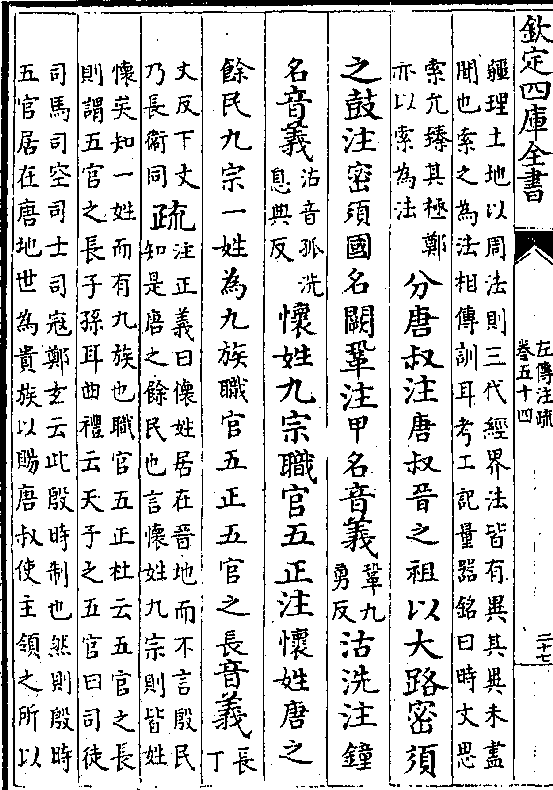 欽定四庫全書
左傳注疏
卷五十四
二十七
疆理土地以周法則三代經界法皆有異其異未盡
聞也索之為法相傳訓耳考工記量器銘曰時文思
索允臻其極鄭
亦以索為法
分唐叔注唐叔晉之祖以大路密須
之鼓注密須國名闕鞏注甲名音義
鞏九
勇反
沽洗注鐘
名音義
沽音孤洗
息典反
懷姓九宗職官五正注懷姓唐之
餘民九宗一姓為九族職官五正五官之長音義
長
丁
丈反下文
乃長衛同
疏
注正義曰懷姓居在晉地而不言殷民
知是唐之餘民也言懷姓九宗則皆姓
懷矣知一姓而有九族也職官五正杜云五官之長
則謂五官之長子孫耳曲禮云天子之五官曰司徒
司馬司空司士司寇鄭玄云此殷時制也然則殷時
五官居在唐地世為貴族以賜唐叔使主領之所以